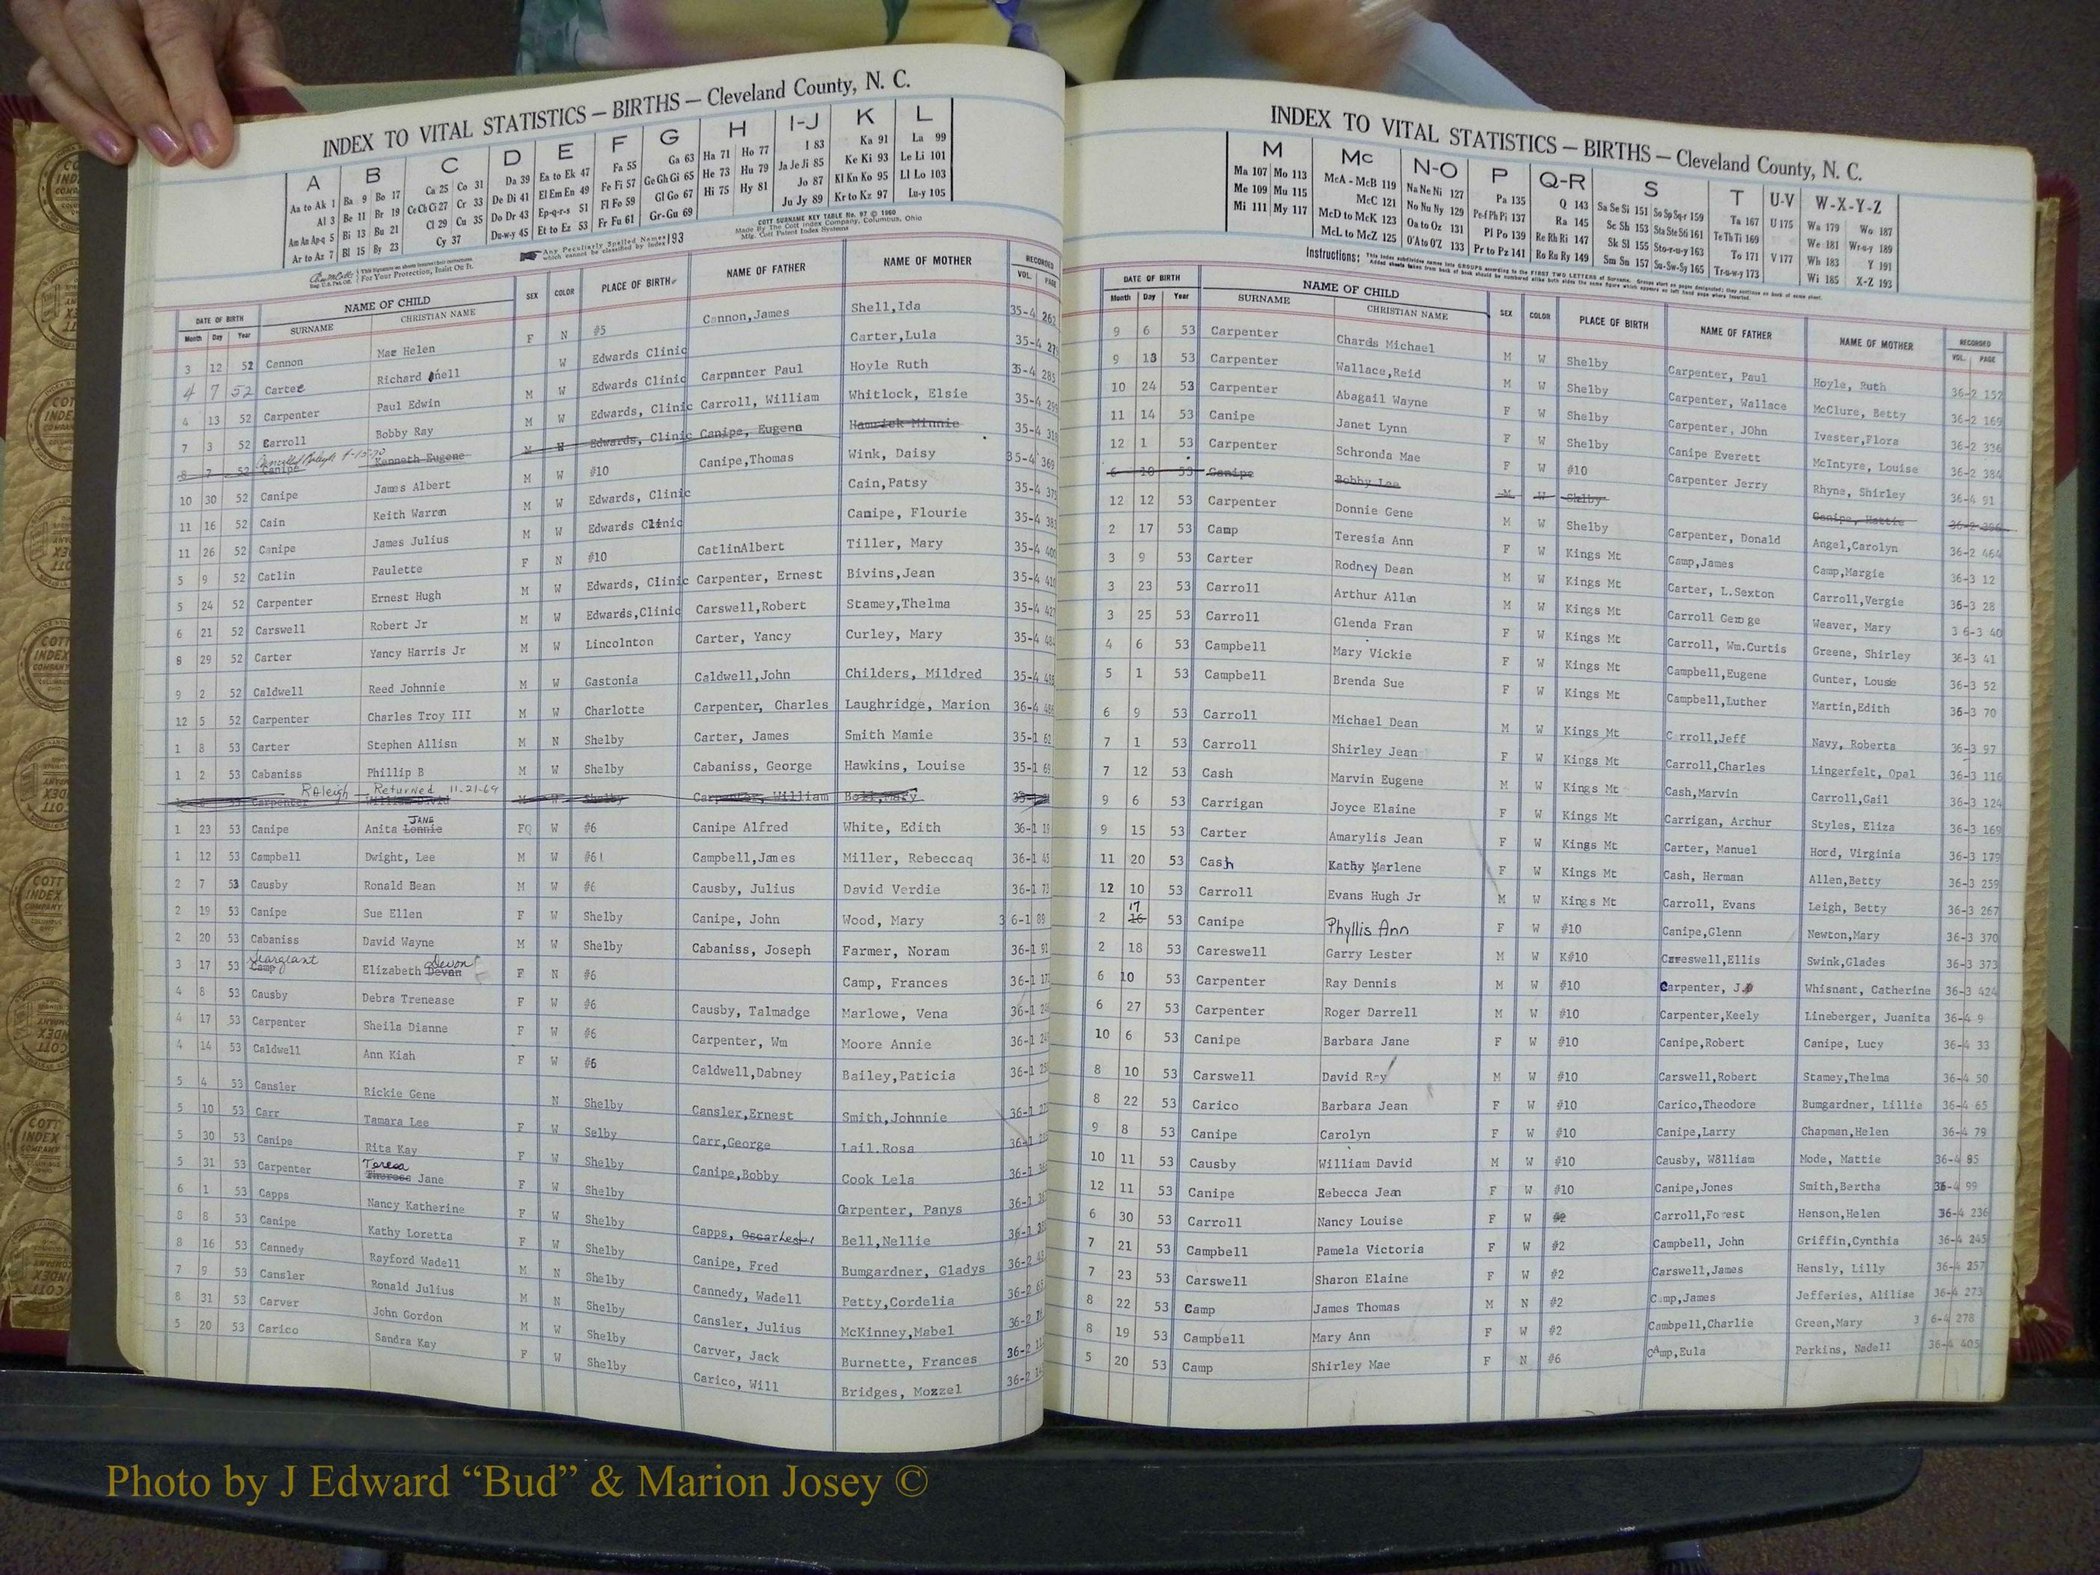 INDEX TO VITAL STATISTICS — BIRTHS — Cleveland County, N. C.
A B C D E F G H I-J K L
Aa to Ak 1 Ba 9 Bo 17 Ca 25 Co 31 Da 39 Ea to Ek 47 Fa 55 Ga 63 Ha 71 Ho 77 I 83 Ka 91 La 99
Al 3 Be 11 Br 19 Ce Ch Ci 27 Cr 33 De Di 41 El Em En 49 Fe Fi 57 Ge Gh Gi 65 He 73 Hu 79 Ja Je Ji 85 Ke Ki 93 Le Li 101
Am An Ap-q 5 Bi 13 Bu 21 Cl 29 Cu 35 Do Dr 43 Ep-q-r-s 51 Fl Fo 59 Gl Go 67 Hi 75 Hy 81 Jo 87 Kl Kn Ko 95 Ll Lo 103
Ar to Az 7 Bl 15 By 23 Cy 37 Du-w-y 45 Et to Ez 53 Fr Fu 61 Gr-Gu 69 Ju Jy 89 Kr to Kz 97 Lu-y 105
COTT SURNAME KEY TABLE No. 97 © 1960
Made By The Cott Index Company, Columbus, Ohio
Mfg. Cott Patent Index Systems
For Your Protection, Insist On It.
Any Peculiarly Spelled Names which cannot be classified by Index 193
DATE OF BIRTH NAME OF CHILD SEX COLOR PLACE OF BIRTH NAME OF FATHER NAME OF MOTHER RECORDED
Month Day Year SURNAME CHRISTIAN NAME VOL. PAGE
3 12 52 Cannon Mae Helen F N #5 Cannon,James Shell,Ida 35-4
4 7 52 Carter Richard W Edwards Clinic Carter,Lula 35-4
4 13 52 Carpenter Paul Edwin M W Edwards Clinic Carpenter Paul Hoyle Ruth 35-4 285
7 3 52 Carroll Bobby Ray M W Edwards, Clinic Carroll, William Whitlock, Elsie 35-4
8 7 52 Canipe Kenneth Eugene M W Edwards, Clinic Canipe, Eugene Hamrick Minnie 35-4
10 30 52 Canipe James Albert M W #10 Canipe,Thomas Wink, Daisy 35-4 369
11 16 52 Cain Keith Warren M W Edwards, Clinic Cain,Patsy 35-4
11 26 52 Canipe James Julius M W Edwards Clinic Canipe, Flourie 35-4
5 9 52 Catlin Paulette F N #10 CatlinAlbert Tiller, Mary 35-4
5 24 52 Carpenter Ernest Hugh M W Edwards, Clinic Carpenter, Ernest Bivins,Jean 35-4
6 21 52 Carswell Robert Jr M W Edwards,Clinic Carswell,Robert Stamey,Thelma 35-4
8 29 52 Carter Yancy Harris Jr M W Lincolnton Carter, Yancy Curley, Mary 35-4
9 2 52 Caldwell Reed Johnnie M W Gastonia Caldwell,John Childers, Mildred 35-4
12 5 52 Carpenter Charles Troy III M W Charlotte Carpenter, Charles Laughridge, Marion 36-4
1 8 53 Carter Stephen Allisn M N Shelby Carter, James Smith Mamie 35-1
1 2 53 Cabaniss Phillip B M W Shelby Cabaniss, George Hawkins, Louise 35-1
Raleigh Returned 11-21-69
53 Carpenter William David M W Shelby Carpenter, William
1 23 53 Canipe Anita Lonnie JANE F W #6 Canipe Alfred White, Edith 36-1
1 12 53 Campbell Dwight, Lee M W #6 Campbell,James Miller, Rebeccaq 36-1
2 7 53 Causby Ronald Dean M W #6 Causby, Julius David Verdie 36-1
2 19 53 Canipe Sue Ellen F W Shelby Canipe, John Wood, Mary 3 6-1
2 20 53 Cabaniss David Wayne M W Shelby Cabaniss, Joseph Farmer, Noram 36-1
3 17 53 Camp Sargeant Elizabeth Devan Devon F N #6 Camp, Frances 36-1
4 8 53 Causby Debra Trenease F W #6 Causby, Talmadge Marlowe, Vena 36-1
4 17 53 Carpenter Sheila Dianne F W #6 Carpenter, Wm Moore Annie 36-1
4 14 53 Caldwell Ann Kiah F W #6 Caldwell,Dabney Bailey,Paticia 36-1
5 4 53 Cansler Rickie Gene N Shelby Cansler,Ernest Smith,Johnnie 36-1
5 10 53 Carr Tamara Lee F W Selby Carr,George Lail.Rosa 36-1
5 30 53 Canipe Rita Kay F W Shelby Canipe,Bobby Cook Lela 36-1
5 31 53 Carpenter Teresa Jane F W Shelby Carpenter, Panys 36-1
6 1 53 Capps Nancy Katherine F W Shelby Capps, Bell,Nellie 36-1
8 8 53 Canipe Kathy Loretta F W Shelby Canipe, Fred Bumgardner, Gladys 36-2
8 16 53 Cannedy Rayford Wadell M N Shelby Cannedy, Wadell Petty,Cordelia 36-2
7 9 53 Cansler Ronald Julius M N Shelby Cansler, Julius McKinney,Mabel 36-2
8 31 53 Carver John Gordon M W Shelby Carver, Jack Burnette, Frances 36-2
5 20 53 Carico Sandra Kay F W Shelby Carico, Will Bridges, Mozzel 36-2
INDEX TO VITAL STATISTICS — BIRTHS — Cleveland County, N. C.
M Mc N-O P Q-R S T U-V W-X-Y-Z
Ma 107 Mo 113 McA - McB 119 Na Ne Ni 127 Pa 135 Q 143 Sa Se Si 151 So Sp Sq-r 159 Ta 167 U 175 Wa 179 Wo 187
Me 109 Mu 115 McC 121 No Nu Ny 129 Pe-f Ph Pi 137 Ra 145 Sc Sh 153 Sta Ste Sti 161 Te Th Ti 169 We 181 Wr-u-y 189
Mi 111 My 117 McD to McK 123 Oa to Oz 131 Pl Po 139 Re Rh Ri 147 Sk Sl 155 Sto-r-u-y 163 To 171 V 177 Wh 183 Y 191
McL to McZ 125 O'A to O'Z 133 Pr to Pz 141 Ro Ru Ry 149 Sm Sn 157 Su-Sw-Sy 165 Tr-u-w-y 173 Wi 185 X-Z 193
Instructions: This index subdivides names into GROUPS according to the FIRST TWO LETTERS of Surname.
DATE OF BIRTH NAME OF CHILD SEX COLOR PLACE OF BIRTH NAME OF FATHER NAME OF MOTHER RECORDED
Month Day Year SURNAME CHRISTIAN NAME VOL. PAGE
9 6 53 Carpenter Charels Michael M W Shelby Carpenter, Paul Hoyle, Ruth 36-2 152
9 13 53 Carpenter Wallace,Reid M W Shelby Carpenter, Wallace McClure, Betty 36-2 169
10 24 53 Carpenter Abagail Wayne F W Shelby Carpenter, JOhn Ivester,Flora 36-2 336
11 14 53 Canipe Janet Lynn F W Shelby Canipe Everett McIntyre, Louise 36-2 384
12 1 53 Carpenter Schronda Mae F W #10 Carpenter Jerry Rhyne, Shirley 36-4 91
6 10 53 Canipe Bobby Lee M W Shelby Canipe, Hattie 36-2
12 12 53 Carpenter Donnie Gene M W Shelby Carpenter, Donald Angel,Carolyn 36-2 464
2 17 53 Camp Teresia Ann F W Kings Mt Camp,James Camp,Margie 36-3 12
3 9 53 Carter Rodney Dean M W Kings Mt Carter, L.Sexton Carroll,Vergie 36-3 28
3 23 53 Carroll Arthur Allen M W Kings Mt Carroll George Weaver, Mary 3 6-3 40
3 25 53 Carroll Glenda Fran F W Kings Mt Carroll, Wm.Curtis Greene, Shirley 36-3 41
4 6 53 Campbell Mary Vickie F W Kings Mt Campbell,Eugene Gunter, Louse 36-3 52
5 1 53 Campbell Brenda Sue F W Kings Mt Campbell,Luther Martin,Edith 36-3 70
6 9 53 Carroll Michael Dean M W Kings Mt Carroll,Jeff Navy, Roberta 36-3 97
7 1 53 Carroll Shirley Jean F W Kings Mt Carroll,Charles Lingerfelt, Opal 36-3 116
7 12 53 Cash Marvin Eugene M W Kings Mt Cash,Marvin Carroll,Gail 36-3 124
9 6 53 Carrigan Joyce Elaine F W Kings Mt Carrigan, Arthur Styles, Eliza 36-3 169
9 15 53 Carter Amarylis Jean F W Kings Mt Carter, Manuel Hord, Virginia 36-3 179
11 20 53 Cash Kathy Marlene F W Kings Mt Cash, Herman Allen,Betty 36-3 259
12 10 53 Carroll Evans Hugh Jr M W Kings Mt Carroll, Evans Leigh, Betty 36-3 267
2 16 17 53 Canipe Phyllis Ann F W #10 Canipe,Glenn Newton,Mary 36-3 370
2 18 53 Careswell Garry Lester M W K#10 Careswell,Ellis Swink,Glades 36-3 373
6 10 53 Carpenter Ray Dennis M W #10 Carpenter, J. Whisnant, Catherine 36-3 424
6 27 53 Carpenter Roger Darrell M W #10 Carpenter,Keely Lineberger, Juanita 36-4 9
10 6 53 Canipe Barbara Jane F W #10 Canipe,Robert Canipe, Lucy 36-4 33
8 10 53 Carswell David Ray M W #10 Carswell,Robert Stamey,Thelma 36-4 50
8 22 53 Carico Barbara Jean F W #10 Carico,Theodore Bumgardner, Lillie 36-4 65
9 8 53 Canipe Carolyn F W #10 Canipe,Larry Chapman,Helen 36-4 79
10 11 53 Causby William David M W #10 Causby, W8lliam Mode, Mattie 36-4 85
12 11 53 Canipe Rebecca Jean F W #10 Canipe,Jones Smith,Bertha 36-4 99
6 30 53 Carroll Nancy Louise F W #2 Carroll,Forest Henson,Helen 36-4 236
7 21 53 Campbell Pamela Victoria F W #2 Campbell, John Griffin,Cynthia 36-4 245
7 23 53 Carswell Sharon Elaine F W #2 Carswell,James Hensly, Lilly 36-4 257
8 22 53 Camp James Thomas M N #2 Camp,James Jefferies, Alilise 36-4 273
8 19 53 Campbell Mary Ann F W #2 Cambpell,Charlie Green,Mary 3 6-4 278
5 20 53 Camp Shirley Mae F N #6 CAmp,Eula Perkins, Nadell 36-4 405
Photo by J Edward “Bud” & Marion Josey ©